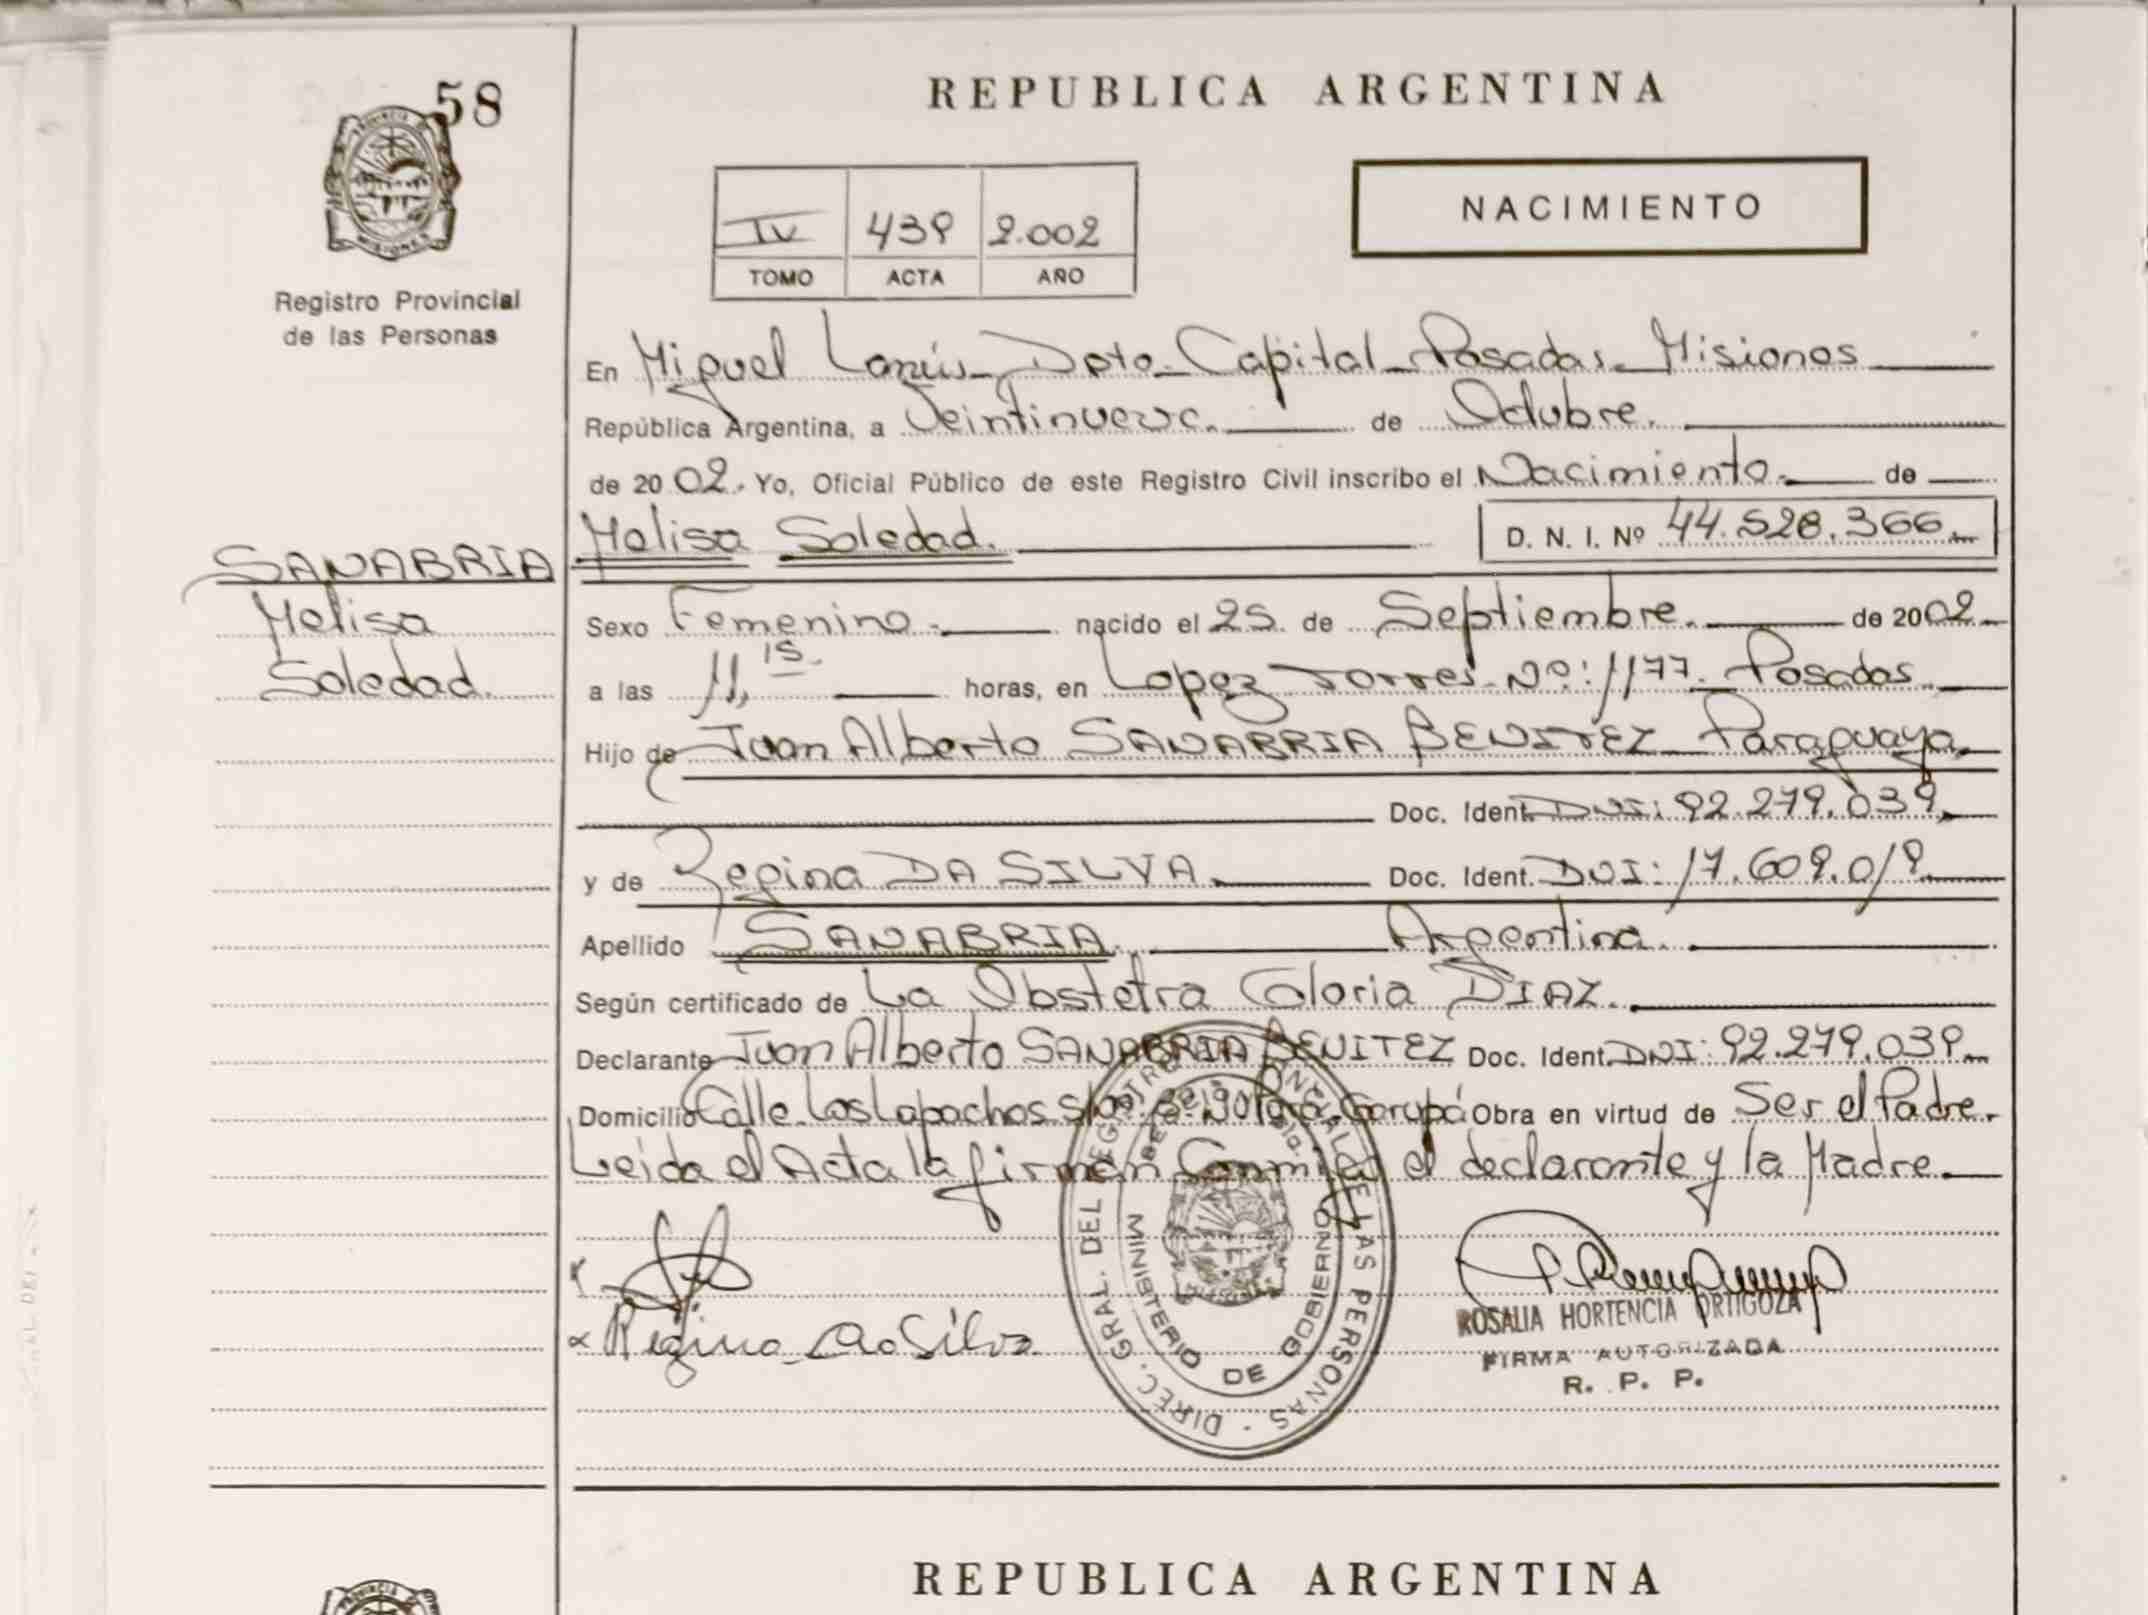 58
REPUBLICA ARGENTINA
PROVINCIA DE
MISIONES
NACIMIENTO
IV 439 2.002
TOMO ACTA AÑO
Registro Provincial
de las Personas
En Miguel Lanús_Dpto_Capital_Posadas_Misiones
República Argentina, a Veintinueve. de Octubre.
de 2002. Yo, Oficial Público de este Registro Civil inscribo el Nacimiento. de
Melisa Soledad. D. N. I. Nº 44.528.366
SANABRIA
Melisa
Soledad.
Sexo Femenino. nacido el 25. de Septiembre. de 2002
a las 11,15. horas, en Lopez Torres Nº: 1177. Posadas.
Hijo de Juan Alberto SANABRIA BENITEZ Paraguayo,
Doc. Ident. DNI: 92.279.039,
y de Regina DA SILVA. Doc. Ident. DNI: 17.609.019.
Apellido SANABRIA. Argentina.
Según certificado de La Obstetra Gloria DIAZ.
Declarante Juan Alberto SANABRIA BENITEZ Doc. Ident. DNI: 92.279.039
Domicilio Calle Los Lapachos Garupá Obra en virtud de Ser el Padre.
Leida el Acta la firman Conmigo el declarante y la Madre.
DIREC. GRAL. DEL REGISTRO DE LAS PERSONAS
MINISTERIO DE GOBIERNO
Regina da Silva
ROSALIA HORTENCIA ORTIGOZA
FIRMA AUTORIZADA
R. P. P.
REPUBLICA ARGENTINA
PROVINCIA DE